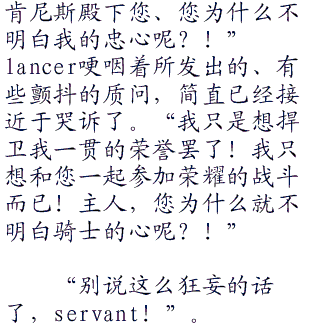 肯尼斯殿下您、您为什么不
明白我的忠心呢？！”
lancer哽咽着所发出的、有
些颤抖的质问，简直已经接
近于哭诉了。“我只是想捍
卫我一贯的荣誉罢了！我只
想和您一起参加荣耀的战斗
而已！主人，您为什么就不
明白骑士的心呢？！”
“别说这么狂妄的话
了，servant！”。